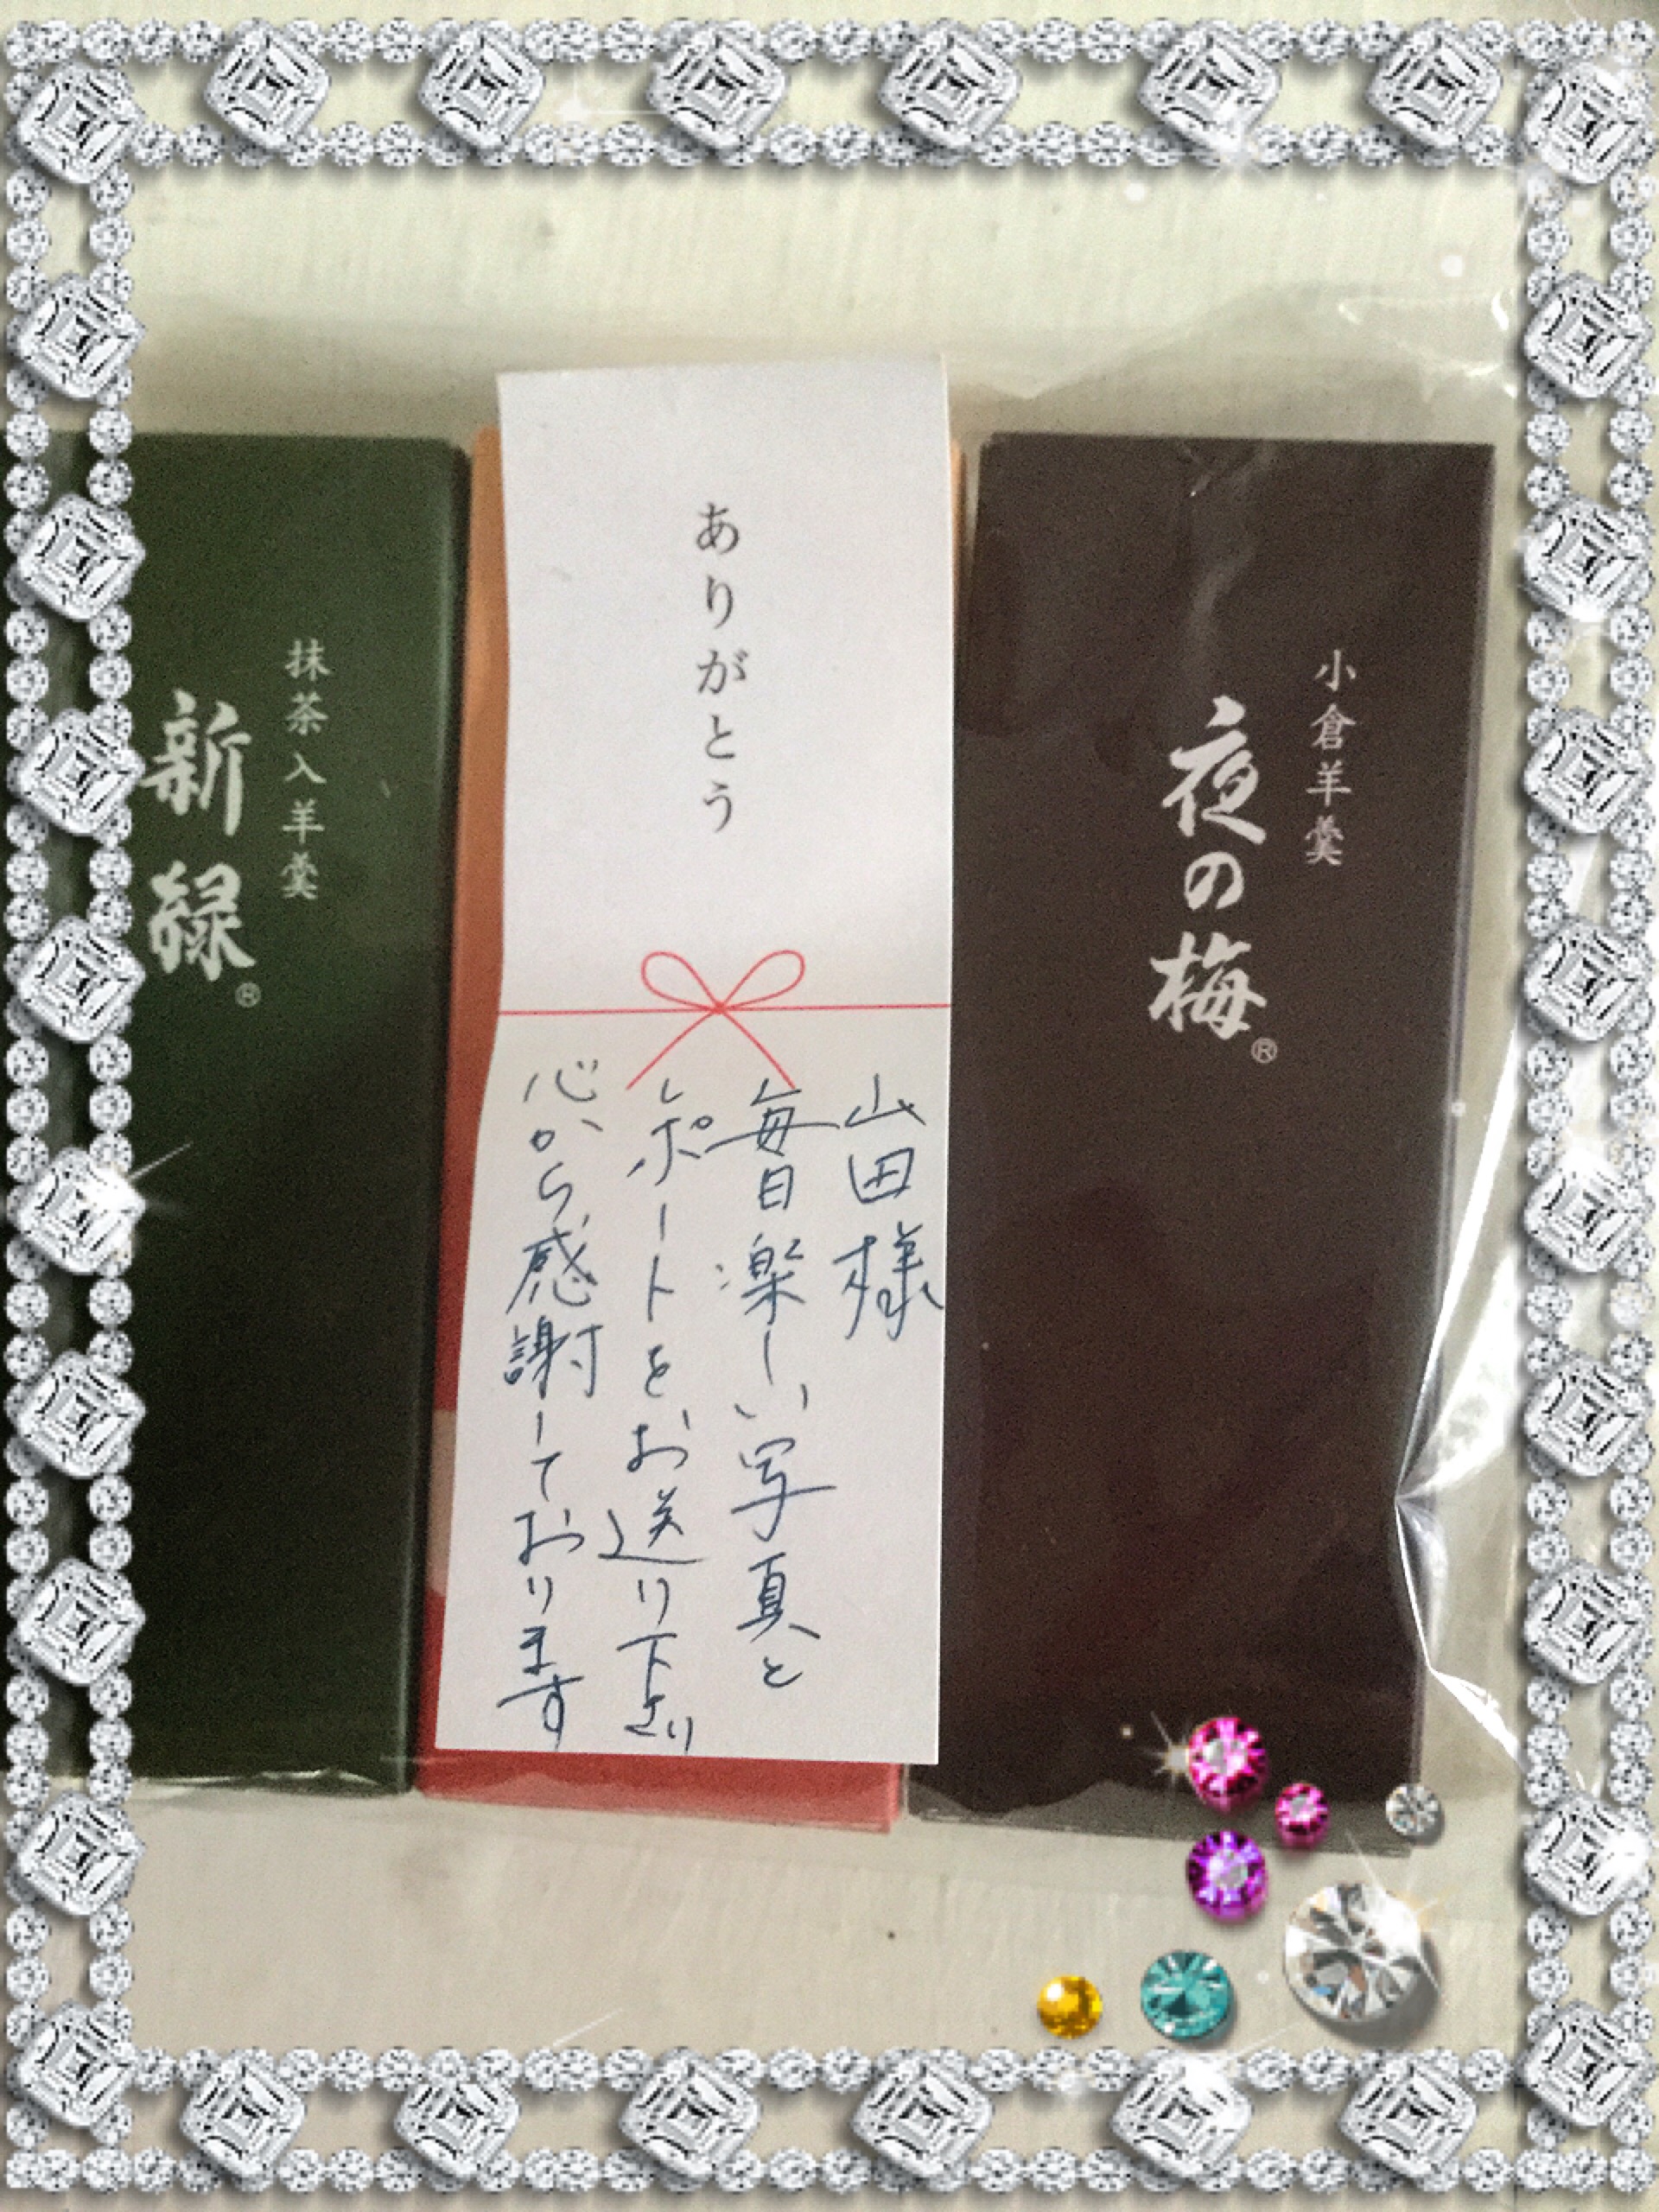 小倉羊羹
夜の梅®
ありがとう
山田様
毎日楽しい写真と
レポートをお送り下さり
心から感謝しております
抹茶入羊羹
新緑®